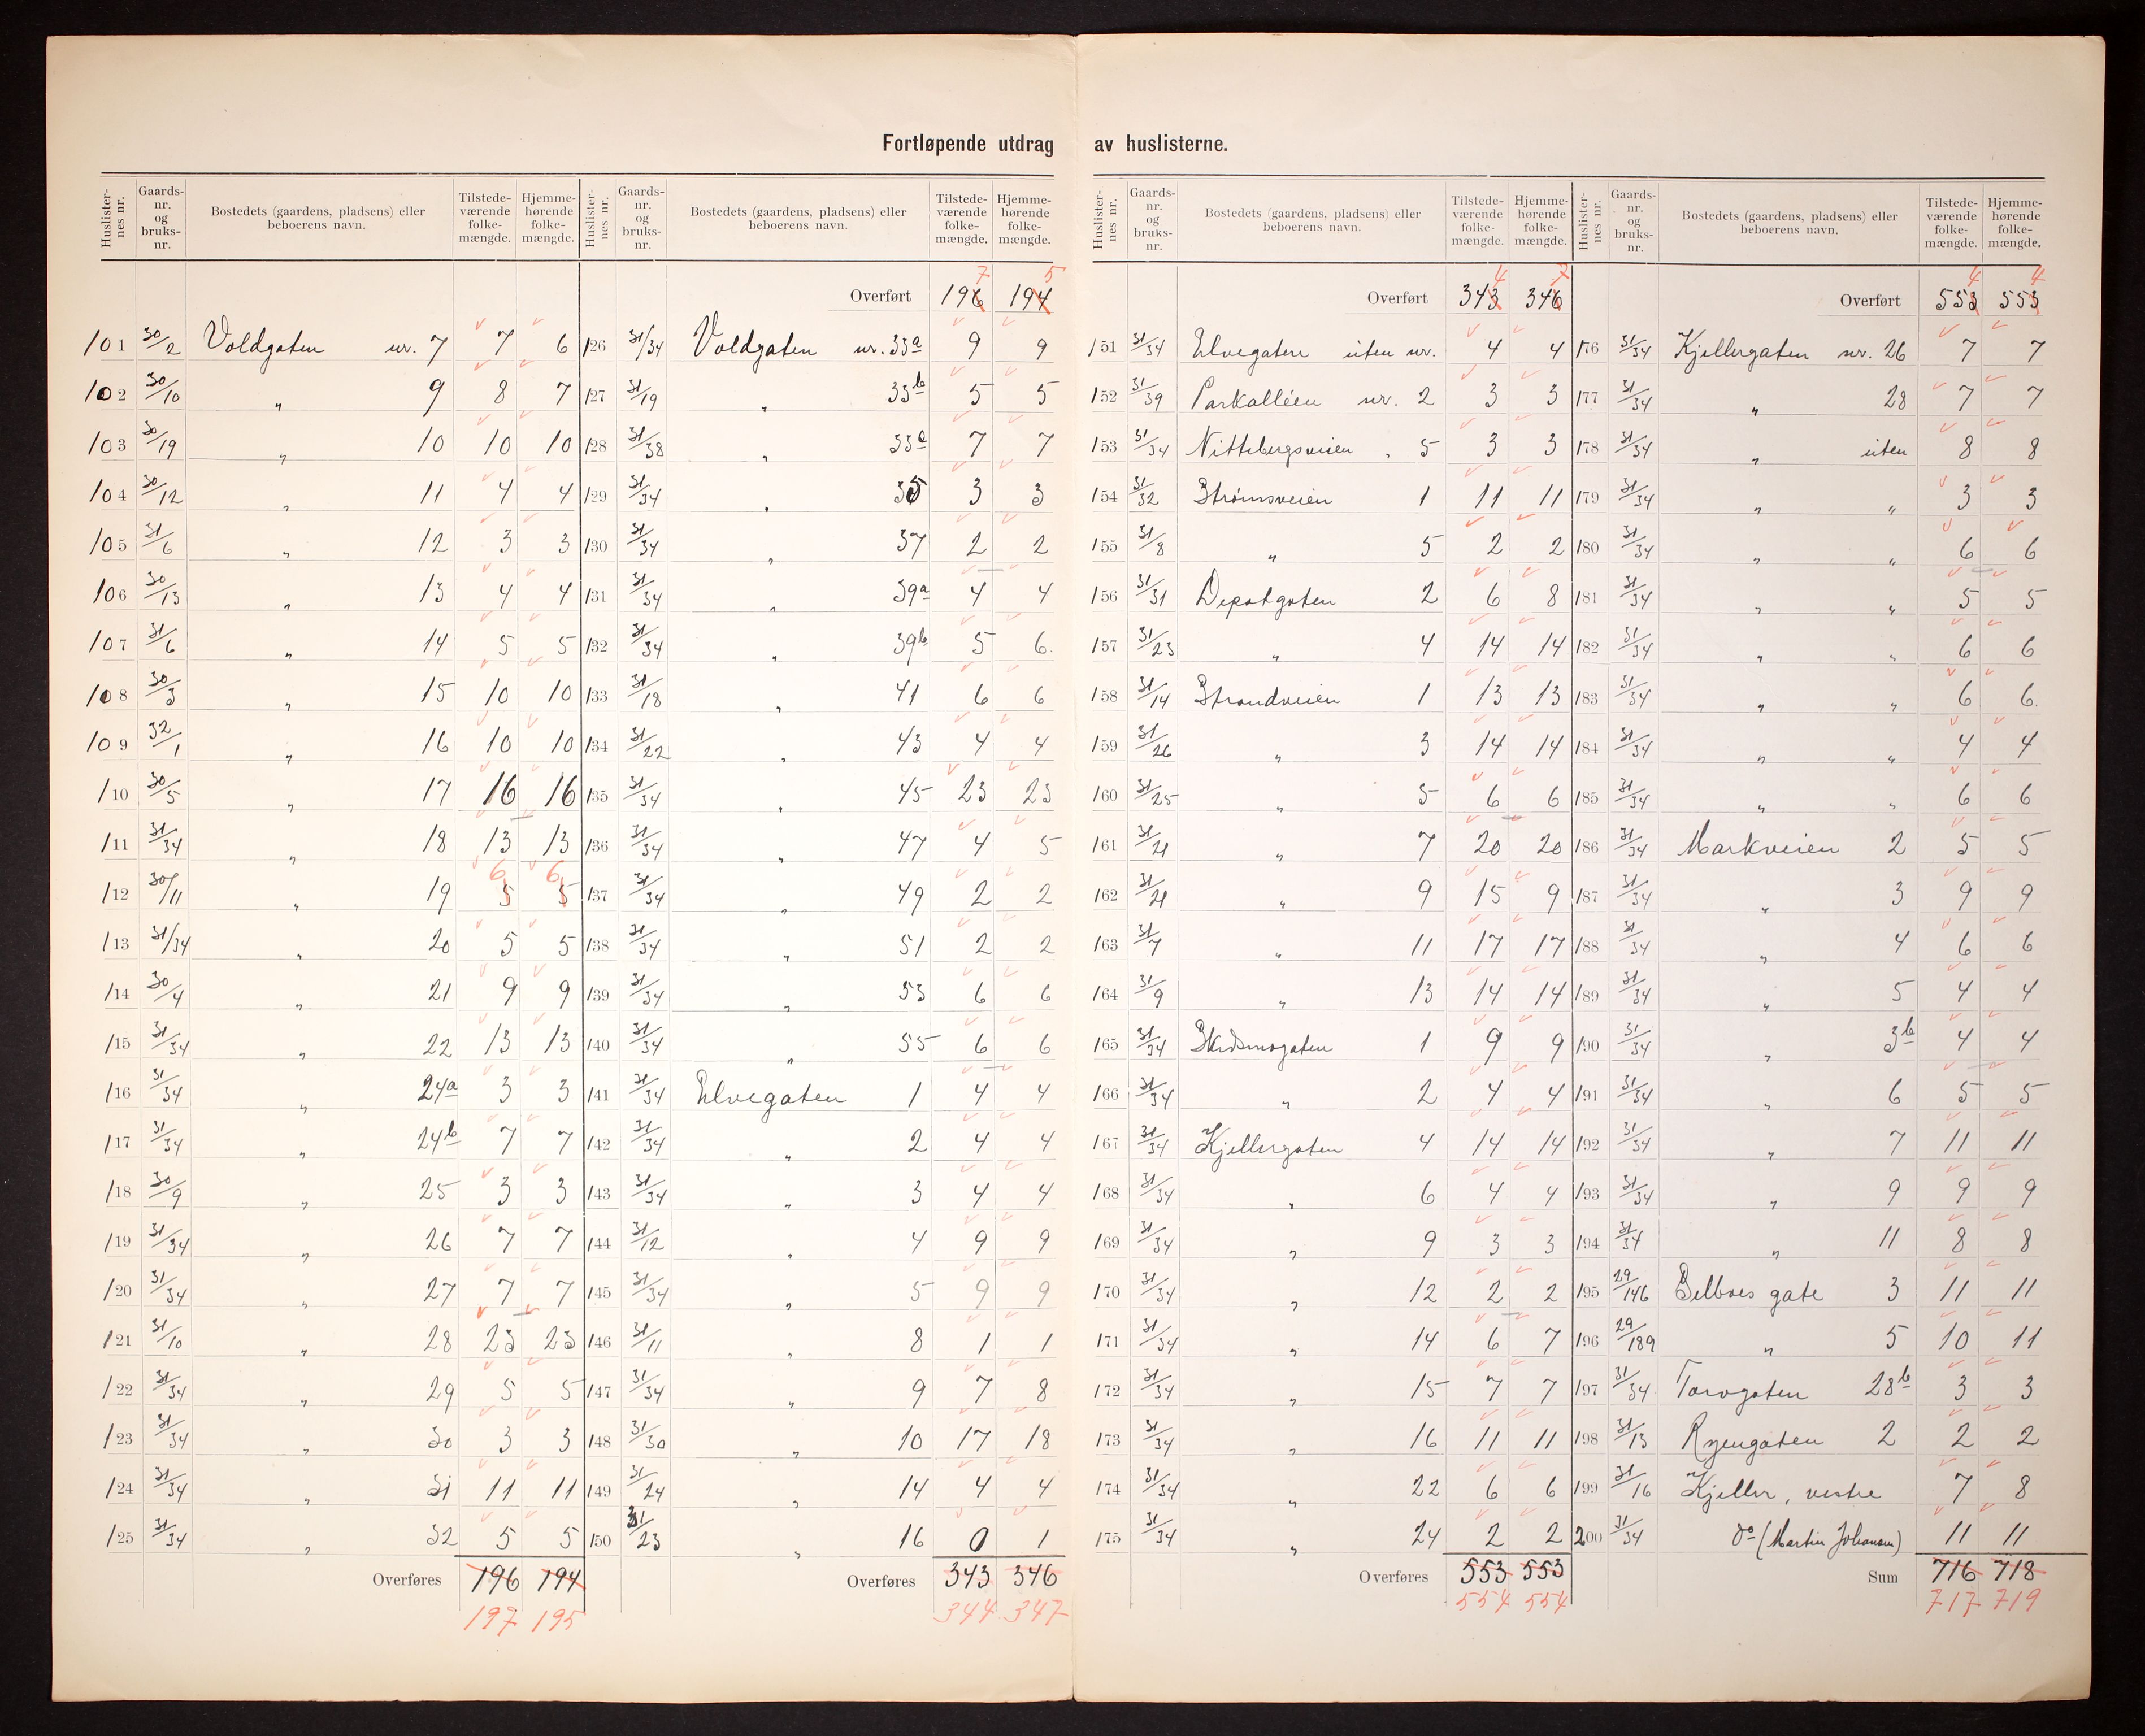 Fortløpende utdrag av huslisterne.
Huslister-nes nr. Gaards-nr. og bruks-nr. Bostedets (gaardens, pladsens) eller beboerens navn. Tilstede-værende folke-mængde. Hjemme-hørende folke-mængde.
101 30/2 Voldgaten nr. 7 7 6
102 30/10 " 9 8 7
103 30/19 " 10 10 10
104 30/12 " 11 4 4
105 31/6 " 12 3 3
106 30/13 " 13 4 4
107 31/6 " 14 5 5
108 30/3 " 15 10 10
109 32/1 " 16 10 10
110 30/5 " 17 16 16
111 31/34 " 18 13 13
6 6
112 30/11 " 19 5 5
113 31/34 " 20 5 5
114 30/4 " 21 9 9
115 31/34 " 22 13 13
116 31/34 " 24a 3 3
117 31/34 " 24b 7 7
118 30/9 " 25 3 3
119 31/34 " 26 7 7
120 31/34 " 27 7 7
121 31/10 " 28 23 23
122 31/34 " 29 5 5
123 31/34 " 30 3 3
124 31/34 " 31 11 11
125 31/34 " 32 5 5
Overføres 196 194
197 195
Huslister-nes nr. Gaards-nr. og bruks-nr. Bostedets (gaardens, pladsens) eller beboerens navn. Tilstede-værende folke-mængde. Hjemme-hørende folke-mængde.
7 5
Overført 196 194
126 31/34 Voldgaten nr. 33a 9 9
127 31/19 " 33b 5 5
128 31/38 " 33a 7 7
129 31/34 " 35 3 3
130 31/34 " 37 2 2
131 31/34 " 39a 4 4
132 31/34 " 39b 5 6.
133 31/18 " 41 6 6
134 31/22 " 43 4 4
135 31/34 " 45 23 23
136 31/34 " 47 4 5
137 31/34 " 49 2 2
138 31/34 " 51 2 2
139 31/34 " 53 6 6
140 31/34 " 55 6 6
141 31/34 Elvegaten 1 4 4
142 31/34 " 2 4 4
143 31/34 " 3 4 4
144 31/12 " 4 9 9
145 31/34 " 5 9 9
146 31/11 " 8 1 1
147 31/34 " 9 7 8
148 31/30 " 10 17 18
149 31/24 " 14 4 4
150 31/23 " 16 0 1
Overføres 343 346
344 347
Huslister-nes nr. Gaards-nr. og bruks-nr. Bostedets (gaardens, pladsens) eller beboerens navn. Tilstede-værende folke-mængde. Hjemme-hørende folke-mængde.
4 7
Overført 343 346
151 31/34 Elvegaten uten nr. 4 4
152 31/39 Parkalléen nr. 2 3 3
153 31/34 Nittebergsveien " 5 3 3
154 31/32 Strømsveien 1 11 11
155 31/8 " 5 2 2
156 31/31 Depotgaten 2 6 8
157 31/23 " 4 14 14
158 31/14 Strandveien 1 13 13
159 31/26 " 3 14 14
160 31/25 " 5 6 6
161 31/21 " 7 20 20
162 31/21 " 9 15 9
163 31/7 " 11 17 17
164 31/9 " 13 14 14
165 31/34 Skedsmogaten 1 9 9
166 31/34 " 2 4 4
167 31/34 Kjellergaten 4 14 14
168 31/34 " 6 4 4
169 31/34 " 9 3 3
170 31/34 " 12 2 2
171 31/34 " 14 6 7
172 31/34 " 15 7 7
173 31/34 " 16 11 11
174 31/34 " 22 6 6
175 31/34 " 24 2 2
Overføres 553 553
554 554
Huslister-nes nr. Gaards-nr. og bruks-nr. Bostedets (gaardens, pladsens) eller beboerens navn. Tilstede-værende folke-mængde. Hjemme-hørende folke-mængde.
4 4
Overført 553 553
176 31/34 Kjellergaten nr. 26 7 7
177 31/34 " 28 7 7
178 31/34 " uten 8 8
179 31/34 " " 3 3
180 31/34 " " 6 6
181 31/34 " " 5 5
182 31/34 " " 6 6
183 31/34 " " 6 6.
184 31/34 " " 4 4
185 31/34 " " 6 6
186 31/34 Markveien 2 5 5
187 31/34 " 3 9 9
188 31/34 " 4 6 6
189 31/34 " 5 4 4
190 31/34 " 3b 4 4
191 31/34 " 6 5 5
192 31/34 " 7 11 11
193 31/34 " 9 9 9
194 31/34 " 11 8 8
195 29/146 gate 3 11 11
196 29/189 " 5 10 11
197 31/34 Torvgaten 28b 3 3
198 31/13 Ryengaten 2 2 2
199 31/16 Kjeller, vestre 7 8
200 31/34 do (Martin Johansen) 11 11
Sum 716 718
717 719